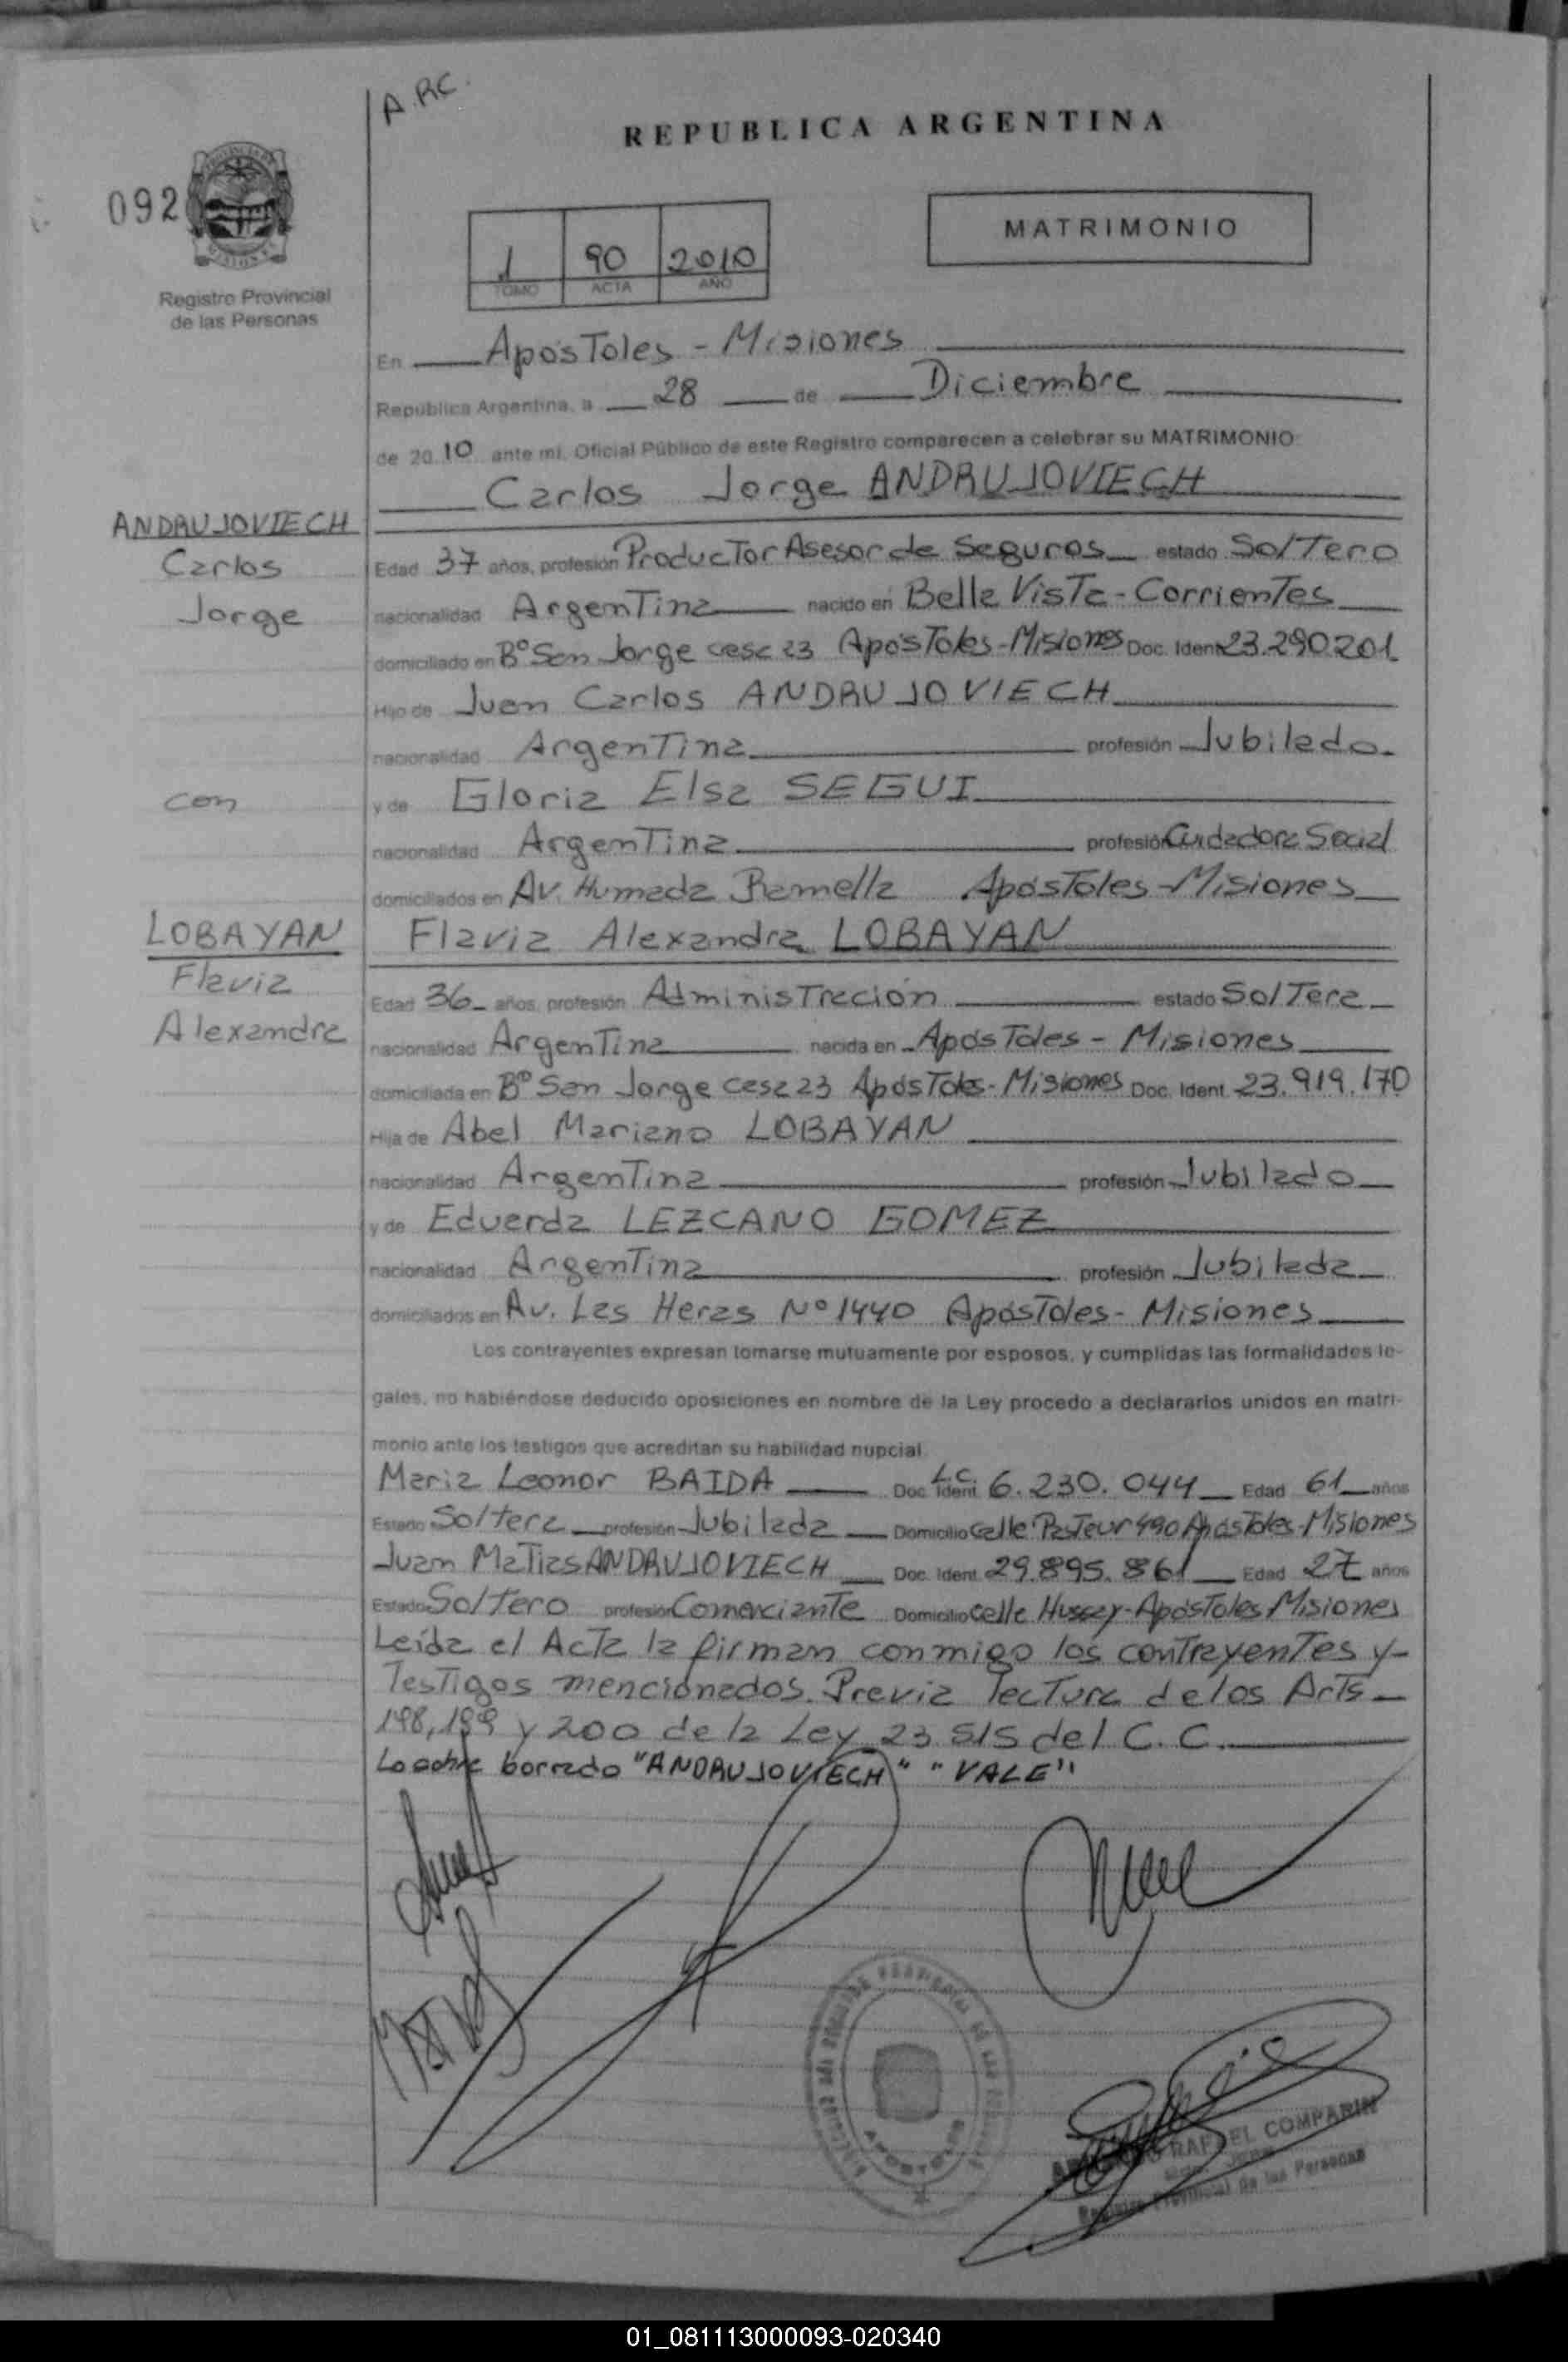 A.RC.
REPUBLICA ARGENTINA
092
MATRIMONIO
1 90 2010
TOMO ACTA AÑO
Registro Provincial
de las Personas
En Apóstoles - Misiones
República Argentina, a 28 de Diciembre
de 2010 ante mi, Oficial Público de este Registro comparecen a celebrar su MATRIMONIO:
Carlos Jorge ANDRUJOVIECH
ANDRUJOVIECH
Carlos
Jorge
Edad 37 años, profesión Productor Asesor de Seguros estado Soltero
nacionalidad Argentina nacido en Bella Vista - Corrientes
domiciliado en Bº San Jorge casa 23 Apóstoles - Misiones Doc. Ident 23.290.201
Hijo de Juan Carlos ANDRUJOVIECH
nacionalidad Argentina profesión Jubilado
con
y de Gloria Elsa SEGUI
nacionalidad Argentina profesión Cuidadora Social
domiciliados en Av. Humada Ramella Apóstoles - Misiones
LOBAYAN
Flavia
Alexandra
Flavia Alexandra LOBAYAN
Edad 36 años, profesión Administración estado Soltera
nacionalidad Argentina nacida en Apóstoles - Misiones
domiciliada en Bº San Jorge casa 23 Apóstoles - Misiones Doc. Ident. 23.919.170
Hija de Abel Mariano LOBAYAN
nacionalidad Argentina profesión Jubilado
y de Eduarda LEZCANO GOMEZ
nacionalidad Argentina profesión Jubilada
domiciliados en Av. Las Heras Nº 1440 Apóstoles - Misiones
Los contrayentes expresan tomarse mutuamente por esposos, y cumplidas las formalidades le-
gales, no habiéndose deducido oposiciones en nombre de la Ley procedo a declararlos unidos en matri-
monio ante los testigos que acreditan su habilidad nupcial.
Maria Leonor BAIDA Doc. Ident. L.C. 6.230.044 Edad 61 años
Estado Soltera profesión Jubilada Domicilio calle Pasteur 490 Apóstoles - Misiones
Juan Matias ANDRUJOVIECH Doc. Ident. 29.895.861 Edad 27 años
Estado Soltero profesión Comerciante Domicilio calle Hussay - Apóstoles Misiones
Leída el Acta la firman conmigo los contrayentes y
Testigos mencionados. Previa lectura de los Arts
198, 199 y 200 de la Ley 23.515 del C.C.
Lo sobre borrado "ANDRUJOVIECH" "VALE"
APOSTOLES
RAFAEL COMPARIN
Registro Provincial de las Personas
01_081113000093-020340